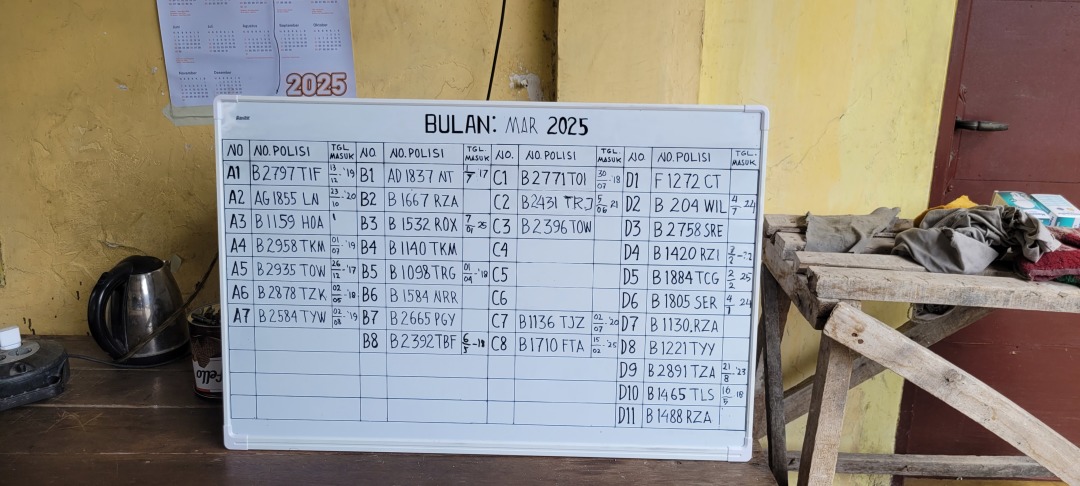 2025
BULAN: MAR 2025
NO NO.POLISI TGL. MASUK NO. NO.POLISI TGL. MASUK NO. NO.POLISI TGL. MASUK NO. NO.POLISI TGL. MASUK
A1 B 2797 TIF 13/12-'19 B1 AD 1837 NT C1 B 2771 TOI 30/07-18 D1 F 1272 CT
A2 AG 1855 LN 23/10-'20 B2 B 1667 RZA C2 B 2431 TRJ 5/06 21 D2 B 204 WIL 4/7 24
A3 B 1159 HOA B3 B 1532 ROX C3 B 2396 TOW D3 B 2758 SRE
A4 B 2958 TKM 01/07-'19 B4 B 1140 TKM C4 D4 B 1420 RZI
A5 B 2935 TOW 26/12-'17 B5 B 1098 TRG 01/04-'18 C5 D5 B 1884 TCG 2/2 25
A6 B 2878 TZK 02/05-'18 B6 B 1584 NRR C6 D6 B 1805 SER
A7 B 2584 TYW 02/08-'19 B7 B 2665 PGY C7 B 1136 TJZ 02/07-'20 D7 B 1130.RZA
B8 B 2392 TBF 6/3-18 C8 B 1710 FTA 15/02-'25 D8 B 1221 TYY
D9 B 2891 TZA 21/8-'23
D10 B 1465 TLS 16/5-18
D11 B 1488 RZA